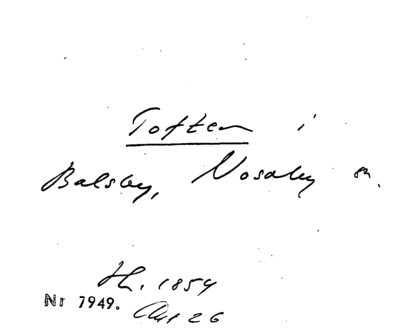 Toften i
Balsby, Nosaby sn.
H. 1859
Nr 7949. Art 26